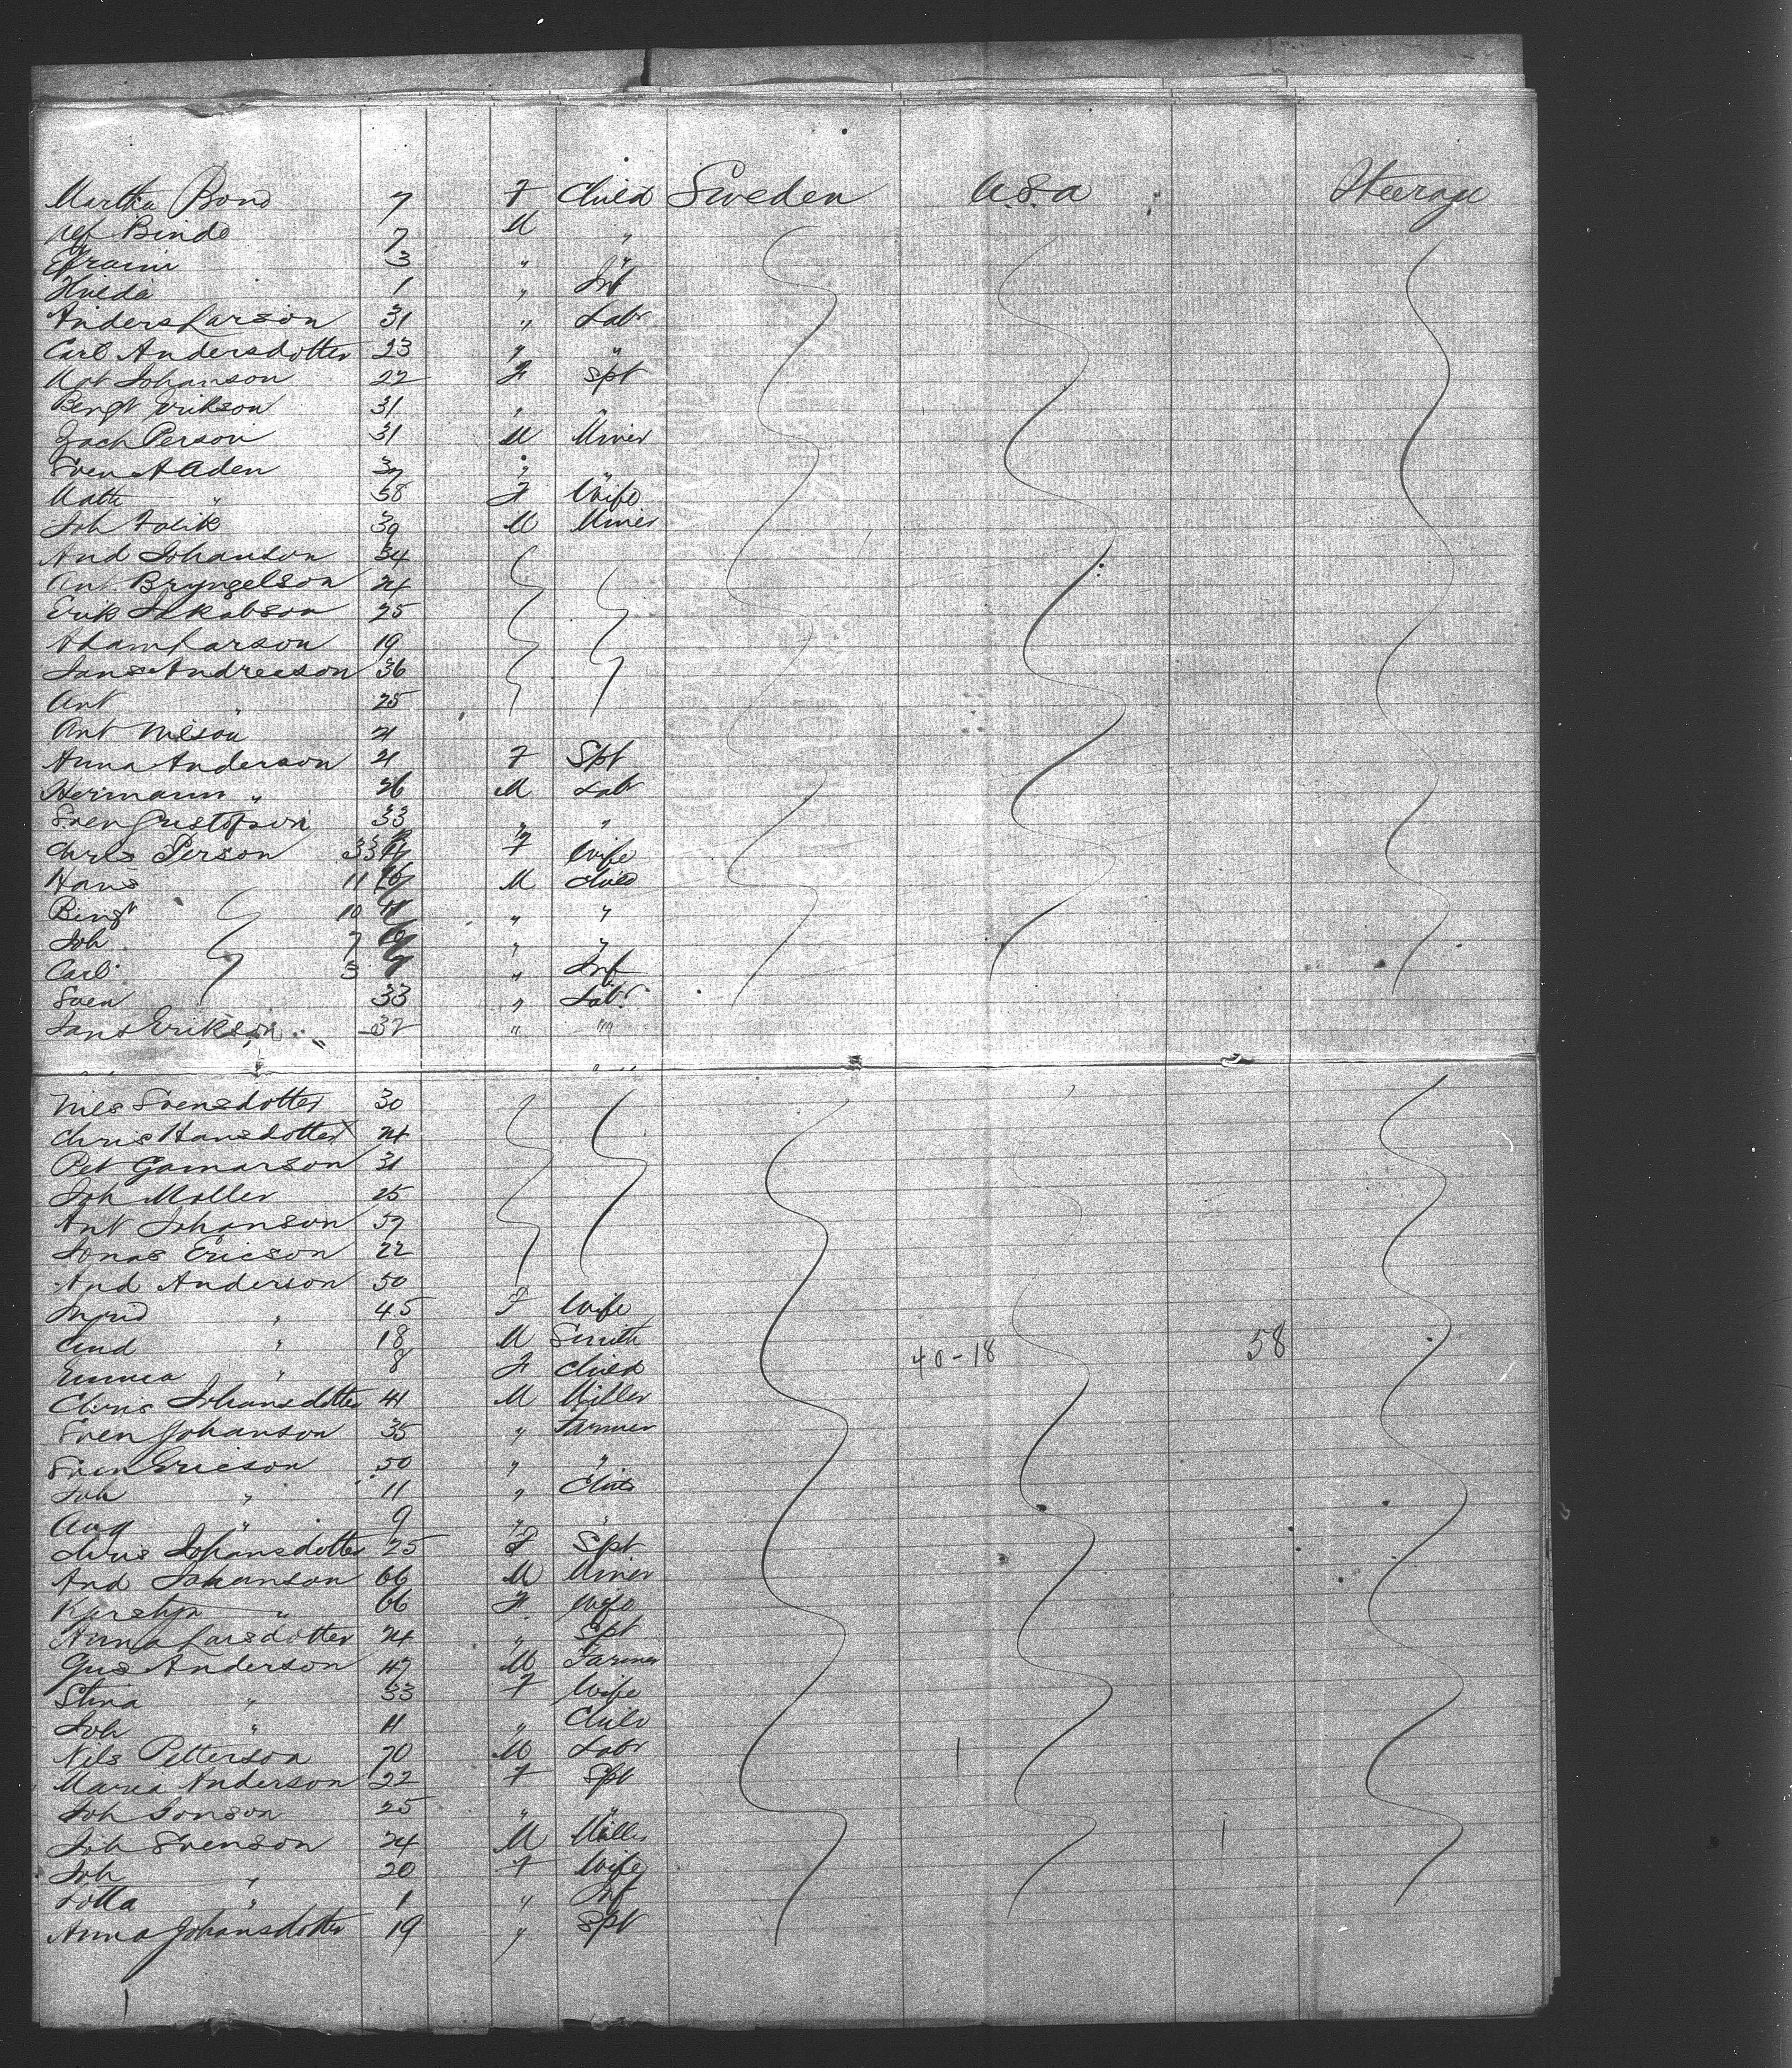 Martha Bond 7 F Child Sweden U.S.a Steerage
Binde 7 M "
Efraim 3 " "
Hulda 1 " Inf
Anders Larson 31 " Labr
Carl Andersdotter 23 " "
Mat Johanson 22 F Spt
Bengt Erikson 31 " "
Zach Person 31 M Miner
Sven A Aden 37 " "
Math " 38 F Wife
Joh Falik 39 M Miner
And Johanson 34
An Bryngelson 24
Erik Jakobson 25
Adam Larson 19
Jans Andreeson 36
Ant " 25
Ant Nilson 21
Anna Anderson 21 F Spt
Hermann " 26 M Labr
Sven Gustofson 33 " "
Chrls Person 33 F Wife
Hans 11 M Child
Bingt 10 " "
Joh 7 " "
Carl 3 " Inf
Sven 33 " Labr
Jans Erikson 32 " "
Nils Svensdotter 30
Chris Hansdotter 24
Pet Gamarson 31
Joh Moller 25
Ant Johanson 57
Jonas Ericson 22
And Anderson 50
Ingrid " 45 F Wife
And " 18 M Smith
Emma " 8 F Child 40-18 58
Chris Johansdotter 41 M Miller
Sven Johanson 35 " Farmer
Sven Ericson 50 " "
Joh " 11 " Child
Aug " 9 " "
Chris Johansdotter 25 F Spt
And Johanson 66 M Miner
Kjerstin " 66 F Wife
Anna Larsdotter 24 " Spt
Gus Anderson 47 M Farmer
Stina " 33 F Wife
Joh " 11 " Child
Nils Petterson 70 M Labr
Maria Anderson 22 F Spt
Joh Jonson 25 " "
Joh Svenson 24 M Miller
Joh " 20 F Wife
Lotta " 1 " Inf
Anna Johansdotter 19 " Spt